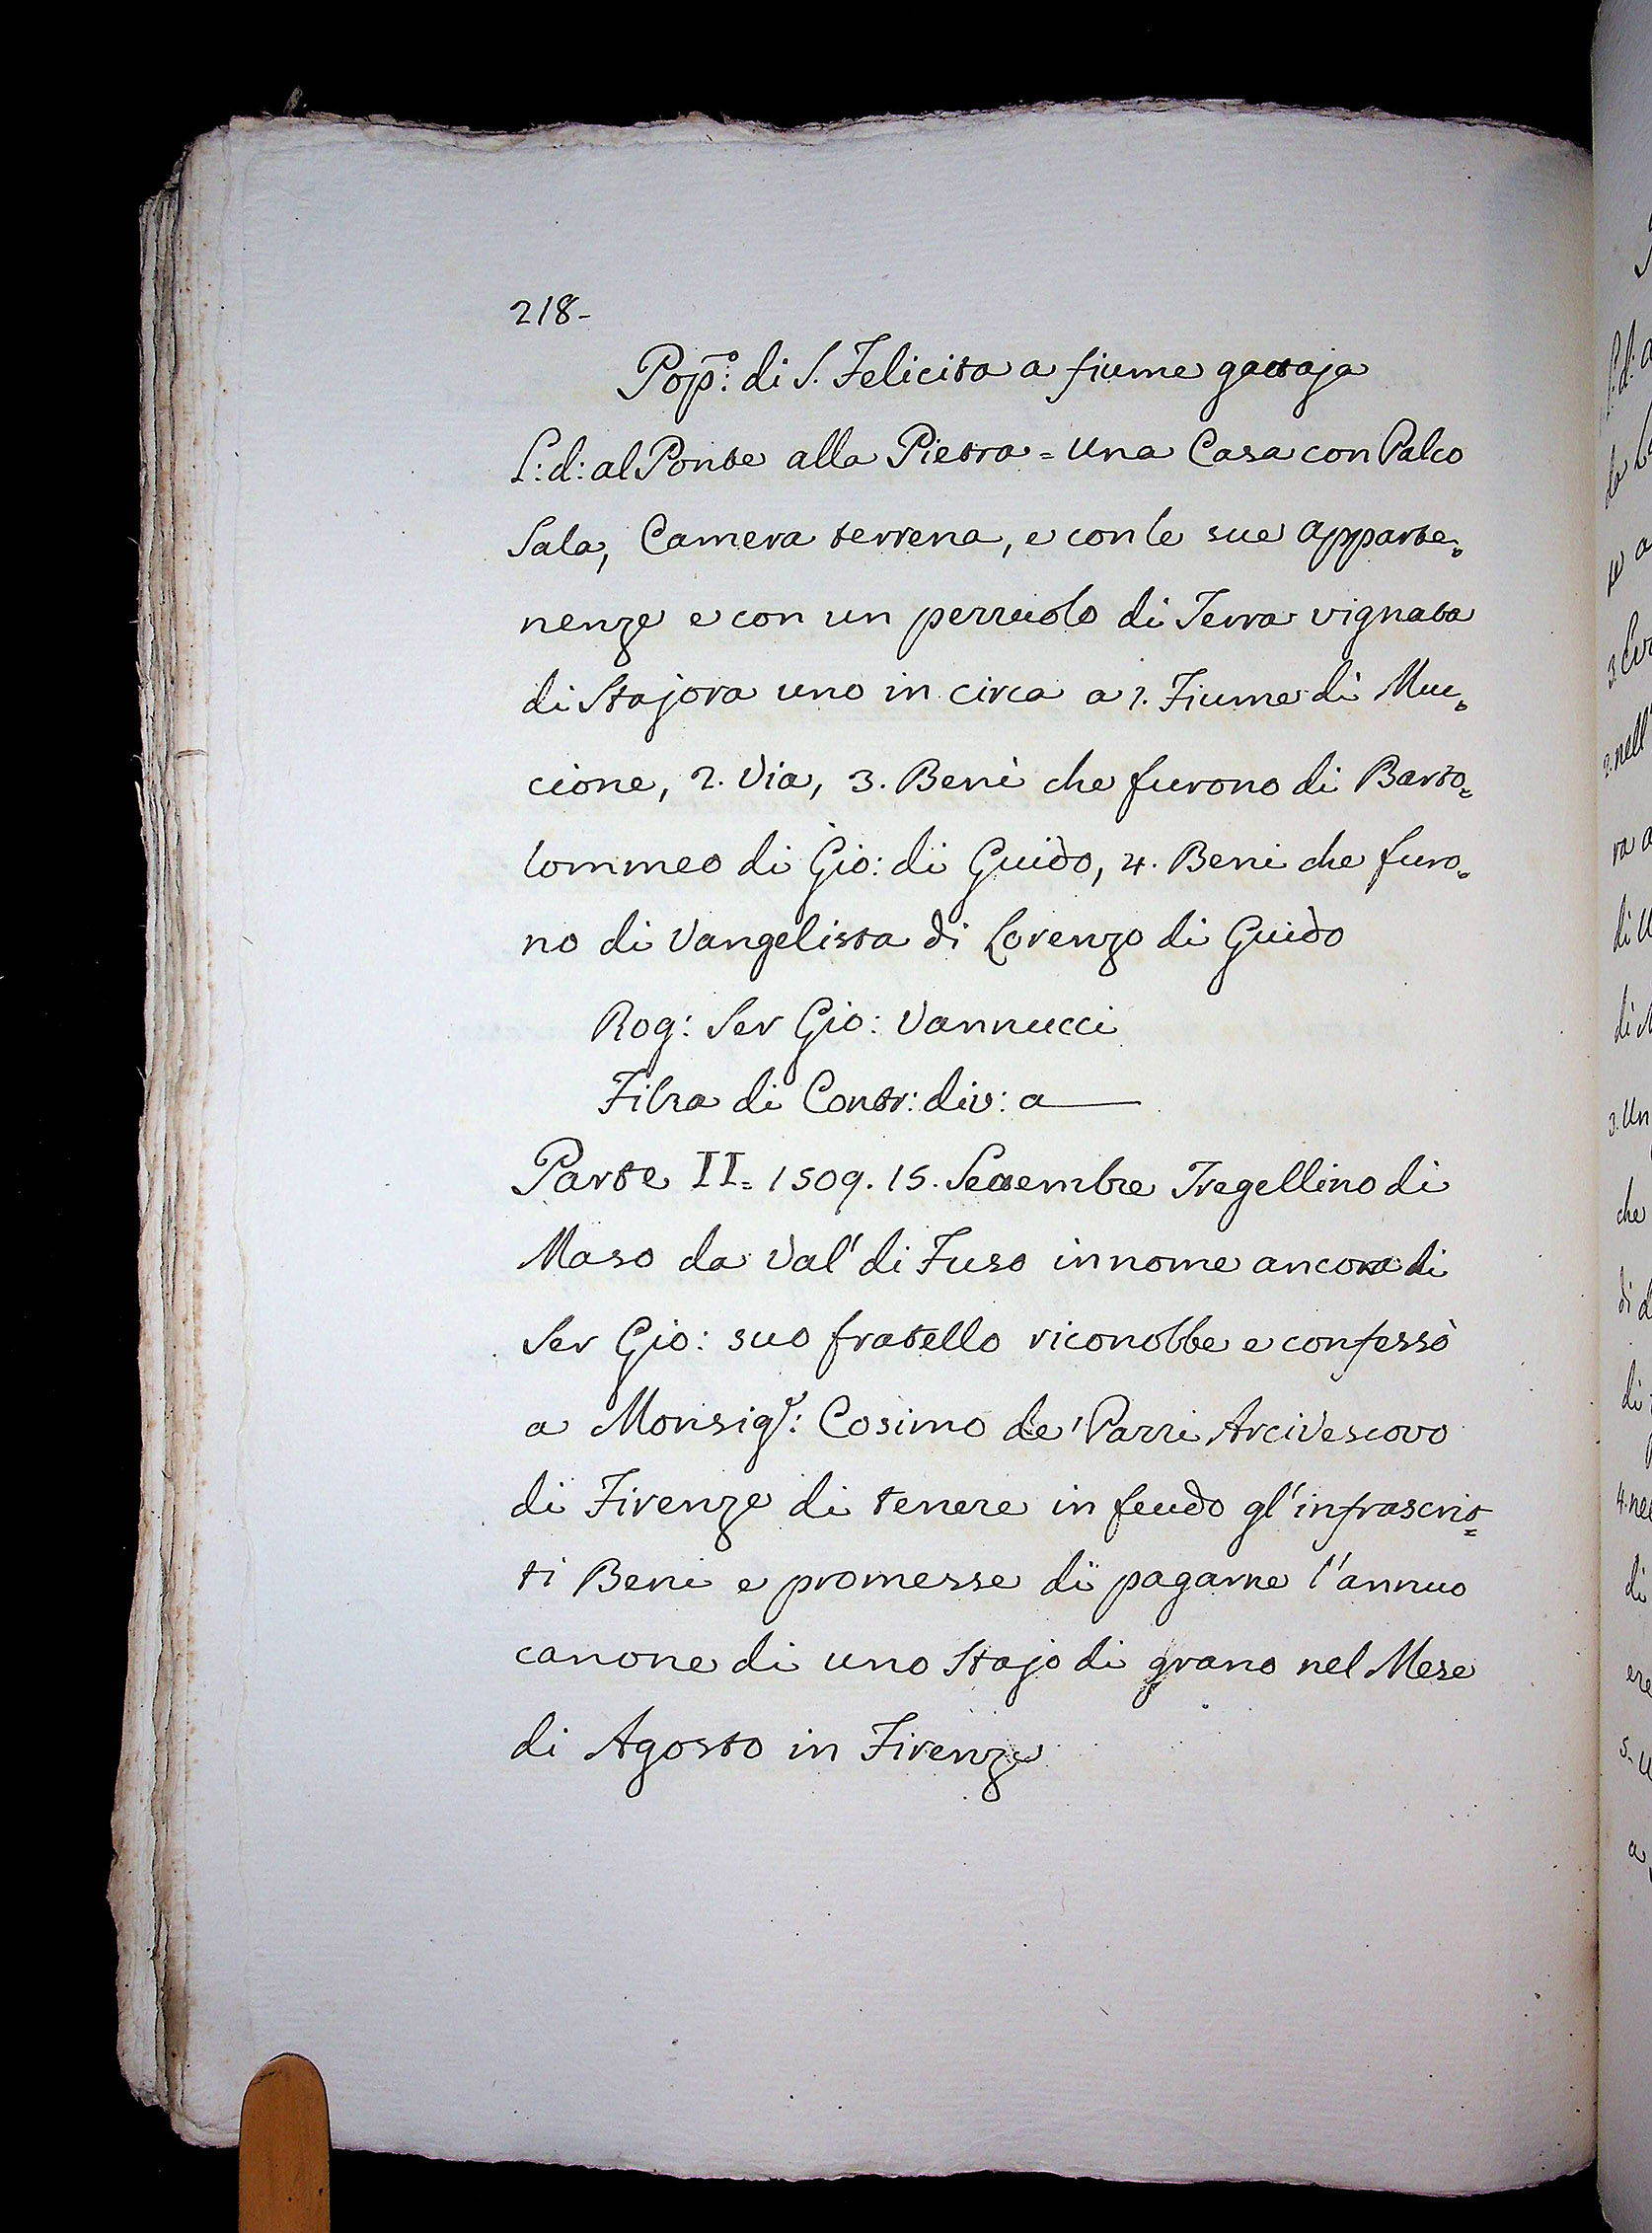 218-
Pop̃:º di S. Felicita a fiume gattaja
L: d: al Ponte alla Pietra = Una Casa con Palco
Sala, Camera terrena, e con le sue apparte=
nenze e con un pezzuolo di Terra vignata
di Stajora uno in circa a 1. Fiume di Muc=
cione, 2. Via, 3. Beni che furono di Barto=
lommeo di Gio: di Guido, 4. Beni che furo=
no di Vangelista di Lorenzo di Guido
Rog: Ser Gio: Vannucci
Filza di Contr: div: a
Parte II = 1509. 15. Settembre Tregellino di
Maso da Val' di Fuso in nome ancora di
Ser Gio: suo fratello riconobbe e confessò
a Monsigʳ: Cosimo de' Pazzi Arcivescovo
di Firenze di tenere in feudo gl'infrascrit=
ti Beni e promesse di pagarne l'annuo
canone di uno Stajo di grano nel Mese
di Agosto in Firenze